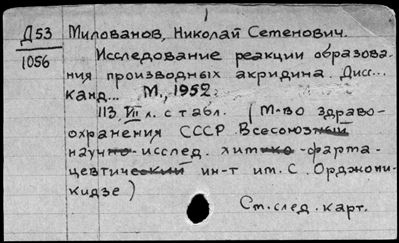 1
Д53 Милованов, Николай Семенович.
1056 Исследование реакции образова-
ния производных акридина. Дисс...
канд... М., 1952.
113, VII л. с табл. (М-во здраво-
охранения СССР. Всесоюзный
научно-исслед. химико-фарма-
цевтический ин-т им. С. Орджони-
кидзе)
См. след. карт.